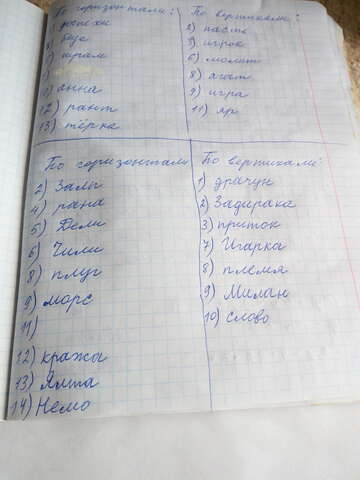 По горизонтали:
доспехи
бис
храм
анна
12) рант
13) тёрка
По вертикали:
2) пасть
игрок
6) молот
8) агат
9) игра
11) яр
По горизонтали
2) Залп
4) рана
5) Дели
6) Чили
8) плуг
9) морс
11)
12) кража
13) Ялта
14) Немо
По вертикали:
1) драчун
2) Задирака
3) приток
7) Игарка
8) племя
9) Милан
10) слово